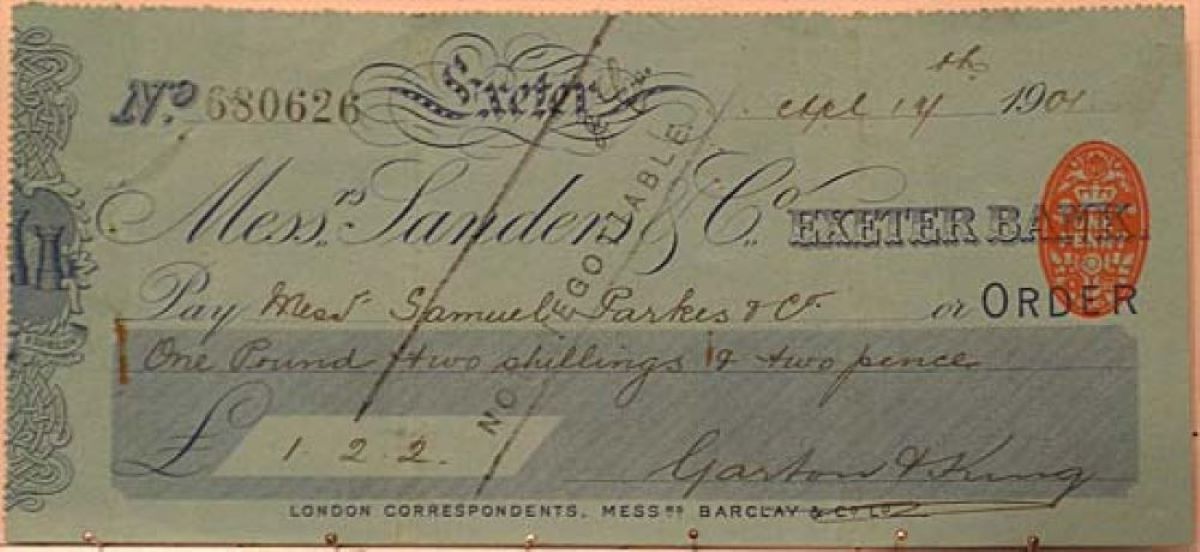 No. 680626 Exeter Apl 14th 1901
& Co.
NOT NEGOTIABLE
Messrs. Sanders & Co. EXETER BANK.
PENNY
Pay Messrs Samuel Parkes & Co. or ORDER
One Pound two shillings & two pence
£ 1.2.2.
Garton & King
LONDON CORRESPONDENTS, MESSRS BARCLAY & CO LD